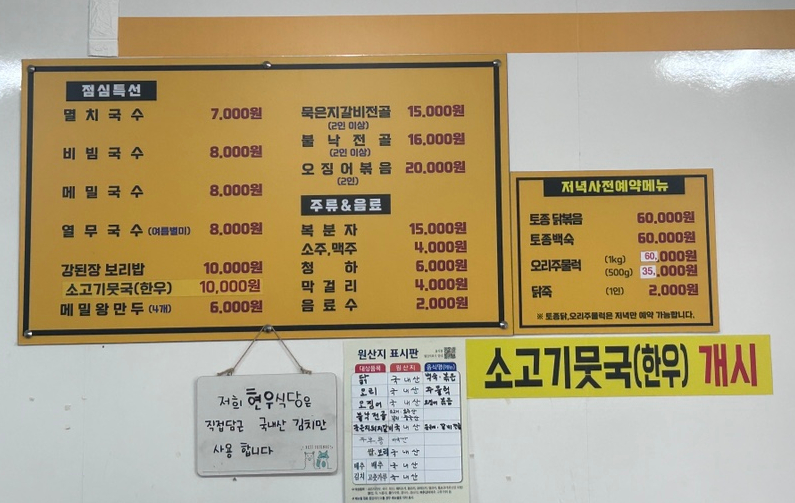 점심특선
멸치국수 7,000원
비빔국수 8,000원
메밀국수 8,000원
열무국수 (여름별미) 8,000원
강된장 보리밥 10,000원
소고기뭇국(한우) 10,000원
메밀왕만두 (4개) 6,000원
묵은지갈비전골 15,000원
(2인 이상)
불낙전골 16,000원
(2인 이상)
오징어볶음 20,000원
(2인)
주류&음료
복분자 15,000원
소주,맥주 4,000원
청하 6,000원
막걸리 4,000원
음료수 2,000원
저녁사전예약메뉴
토종 닭볶음 60,000원
토종백숙 60,000원
오리주물럭 (1kg) 60,000원
(500g) 35,000원
닭죽 (1인) 2,000원
※ 토종닭,오리주물럭은 저녁만 예약 가능합니다.
소고기뭇국(한우) 개시
저희 현우식당은
직접담근 국내산 김치만
사용 합니다
원산지 표시판
대상품목 원산지 음식명(메뉴)
닭 국내산 백숙·볶음
오리 국내산 주물럭
오징어 국내산 오징어 볶음
불낙전골
국내산
쌀,보리 국내산
배추김치 배추 국내산
고춧가루 국내산